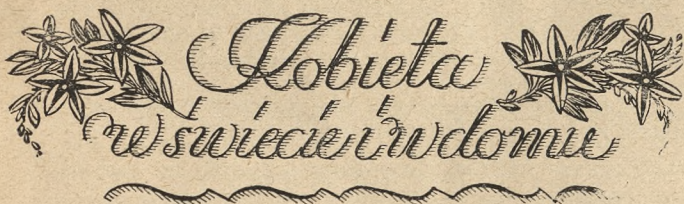 Kobieta
w świecie i w domu